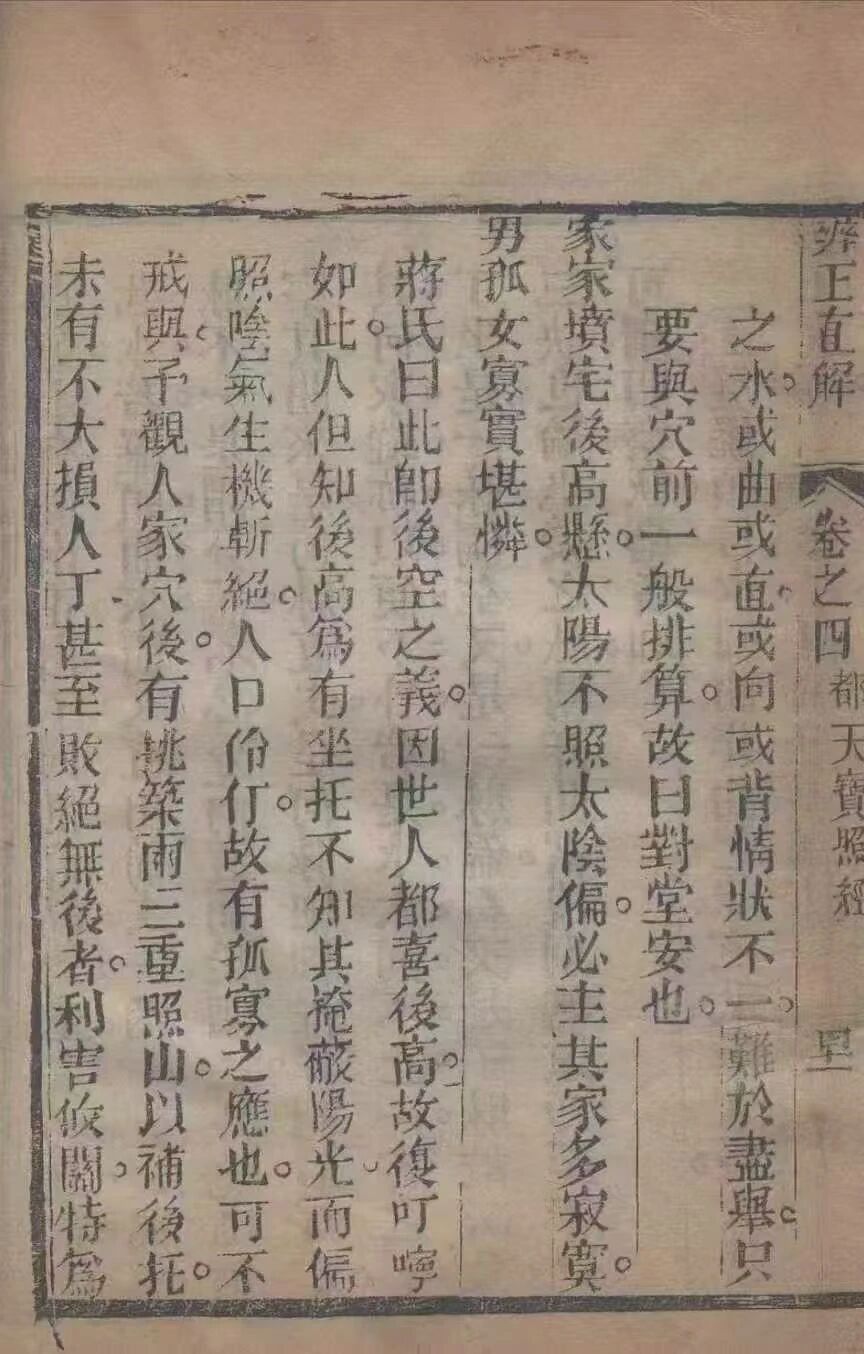 辨正直解 卷之四 都天寶照經
之水或曲或直或向或背情狀不一難於盡舉只
要與穴前一般排算故曰對堂安也
家家墳宅後高懸太陽不照太陰偏必主其家多寂寞
男孤女寡實堪憐
蔣氏曰此卽後空之義因世人都喜後高故復叮嚀
如此人但知後高爲有坐托不知其掩蔽陽光而偏
照陰氣生機斬絕人口伶仃故有孤寡之應也可不
戒與予觀人家穴後有挑築兩三重照山以補後托
未有不大損人丁甚至敗絕無後者利害攸關特爲